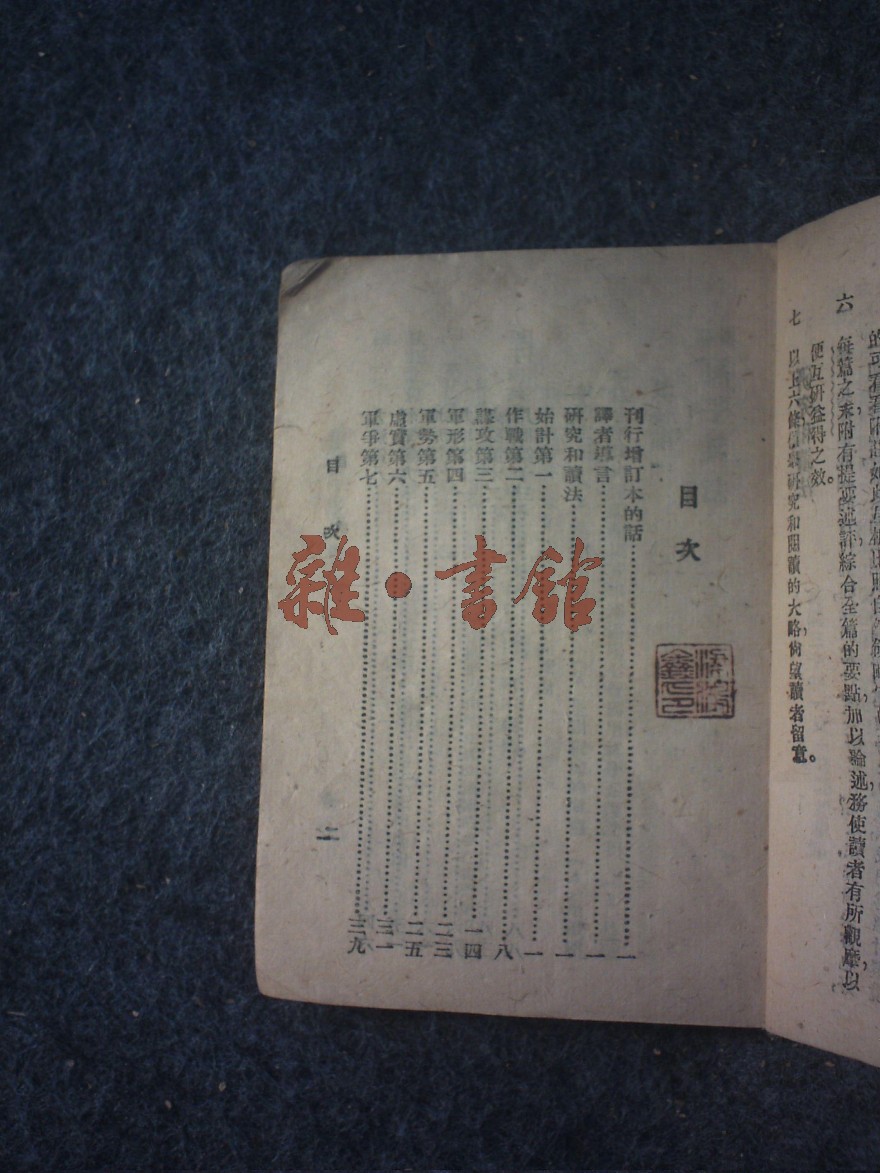 六
每篇之末,附有提要述評,綜合全篇的要點,加以論述,務使讀者有所觀摩,以
便互研益得之效。
七
以上六條
研究和閱讀的大略,尚望讀者留意。
目次
刊行增訂本的話……一
譯者導言……一
研究和讀法……一
始計第一……一
作戰第二……八
謀攻第三……一四
軍形第四……二三
軍勢第五……二五
虛實第六……三一
軍爭第七……三九
目次
雜·書館